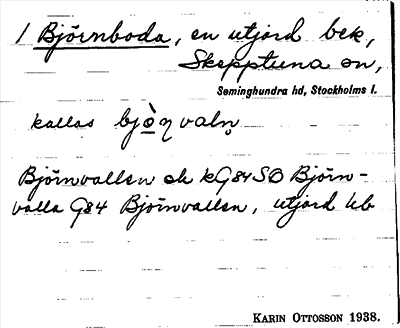 1 Björnboda, en utjord bek,
Skepptuna sn,
Seminghundra hd, Stockholms l.
kallas bjò̱ŋvaln̥
Björnvallen ek kG84SO Björn-
valla G84 Björnvallen, utjord kb
KARIN OTTOSSON 1938.